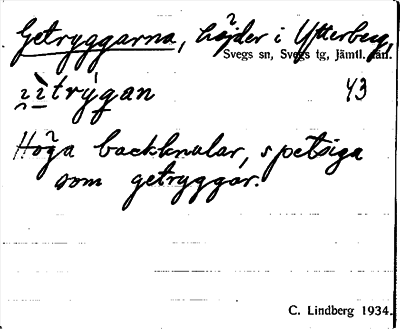 Getryggarna, höjder i Ytterberg,
Svegs sn, Svegs tg, Jämtl. län.
43
Höga backknalar, spetsiga
som getryggar.
C. Lindberg 1934.